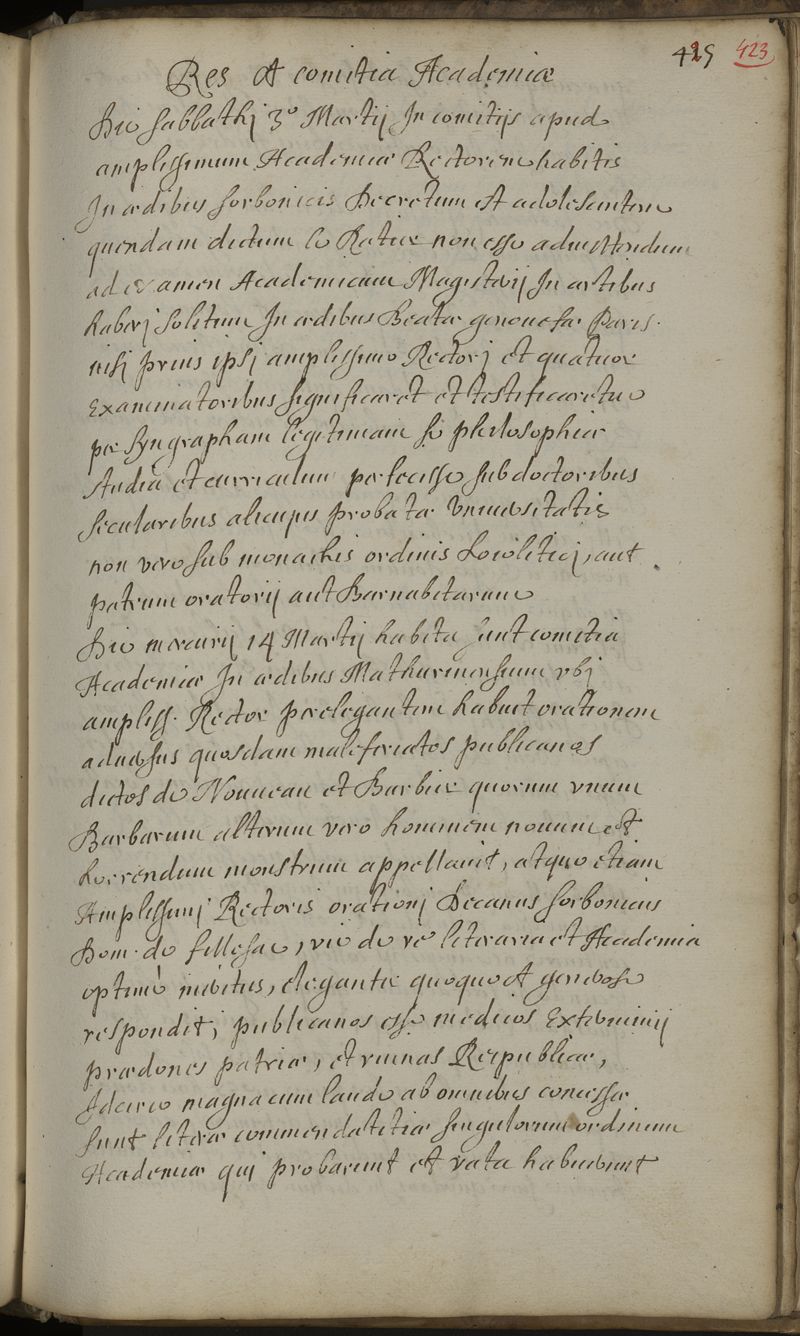 425 423
Res et comitia Academiæ
Die sabbathj 3° Martij In comitijs apud
amplissimum Academiæ Rectorem habitis
In ædibus sorbonicis Decretum est adolescentem
quendam dictum le Ratier non esse admittendum
ad examen Academicum Magisterij In artibus
haberj solitum In ædibus Beatæ genouefæ Paris.
nisj prius ipsj amplissimo Rectorj et quatuor
Examinatoribus significaret et testificaretur
per syngrapham legitimam se philosophiæ
studia et curriculum perfecisse sub doctoribus
secularibus alicujus probatæ Vniuersitatis
non vero sub monachis ordinis Loioliticj, aut
patrum oratorij aut Barnabitarum
Die mercurij 14 Martij habita sunt comitia
Academiæ In ædibus Mathurinensium vbj
ampliss. Rector perelegantem habuit orationem
aduersus quosdam maleferiatos publicanos
dictos de Nouueau et Barbier quorum vnum
Barbarum alterum vero hominem nouum et
horrendum monstrum appellauit, atque etiam
Amplissimj Rectoris orationj Decanus sorbonicus
Dom. de fillesac, vir de re literaria et Academia
optimè meritus, eleganter quoque et generose
respondit; publicanos esse medicos Exterminij
prædones patriæ, et ruinas Reipublicæ,
Idcirco magna cum laude ab omnibus concessæ
sunt literæ commendatitiæ singulorum ordinum
Academiæ quj probarunt et rata habuerunt